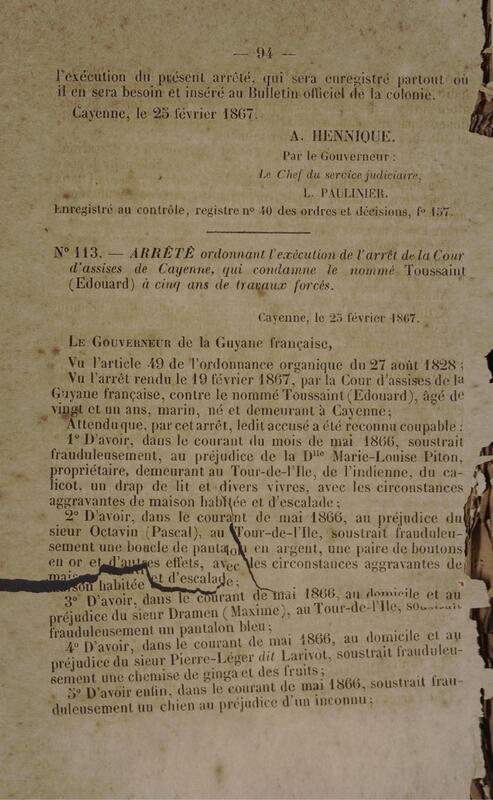 — 94 —
l'exécution du présent arrêté, qui sera enregistré partout où
il en sera besoin et inséré au Bulletin officiel de la colonie.
Cayenne, le 25 février 1867.
A. HENNIQUE.
Par le Gouverneur :
Le Chef du service judiciaire,
L. PAULINIER.
Enregistré au contrôle, registre n° 40 des ordres et décisions, f° 157.
N° 113. — ARRÊTÉ ordonnant l'exécution de l'arrêt de la Cour
d'assises de Cayenne, qui condamne le nommé Toussaint
(Edouard) à cinq ans de travaux forcés.
Cayenne, le 25 février 1867.
LE GOUVERNEUR de la Guyane française,
Vu l'article 49 de l'ordonnance organique du 27 août 1828 ;
Vu l'arrêt rendu le 19 février 1867, par la Cour d'assises de la
Guyane française, contre le nommé Toussaint (Edouard), âgé de
vingt et un ans, marin, né et demeurant à Cayenne;
Attendu que, par cet arrêt, ledit accusé a été reconnu coupable :
1° D'avoir, dans le courant du mois de mai 1866, soustrait
frauduleusement, au préjudice de la Dlle Marie-Louise Piton,
propriétaire, demeurant au Tour-de-l'Ile, de l'indienne, du ca-
licot, un drap de lit et divers vivres, avec les circonstances
aggravantes de maison habitée et d'escalade ;
2° D'avoir, dans le courant de mai 1866, au préjudice du
sieur Octavin (Pascal), au Tour-de-l'Ile, soustrait fraudu­leu-
sement une boucle de pantalon en argent, une paire de boutons
en or et d'autres effets, avec les circonstances aggravantes de
maison habitée et d'escalade ;
3° D'avoir, dans le courant de mai 1866, au domicile et au
préjudice du sieur Dramen (Maxime), au Tour-de-l'Ile, soustrait
frauduleusement un pantalon bleu ;
4° D'avoir, dans le courant de mai 1866, au domicile et au
préjudice du sieur Pierre-Léger dit Larivot, soustrait frauduleu-
sement une chemise de ginga et des fruits ;
5° D'avoir enfin, dans le courant de mai 1866, soustrait frau-
duleusement un chien au préjudice d'un inconnu ;